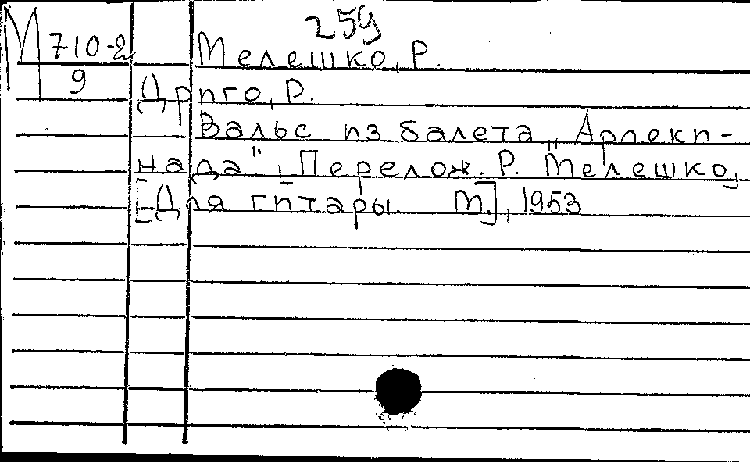 259
М 710-2
9
Мелешко, Р.
Дриго, Р.
Вальс из балета „Арлеки-
нада". Перелож. Р. Мелешко,
[Для гитары М.], 1953